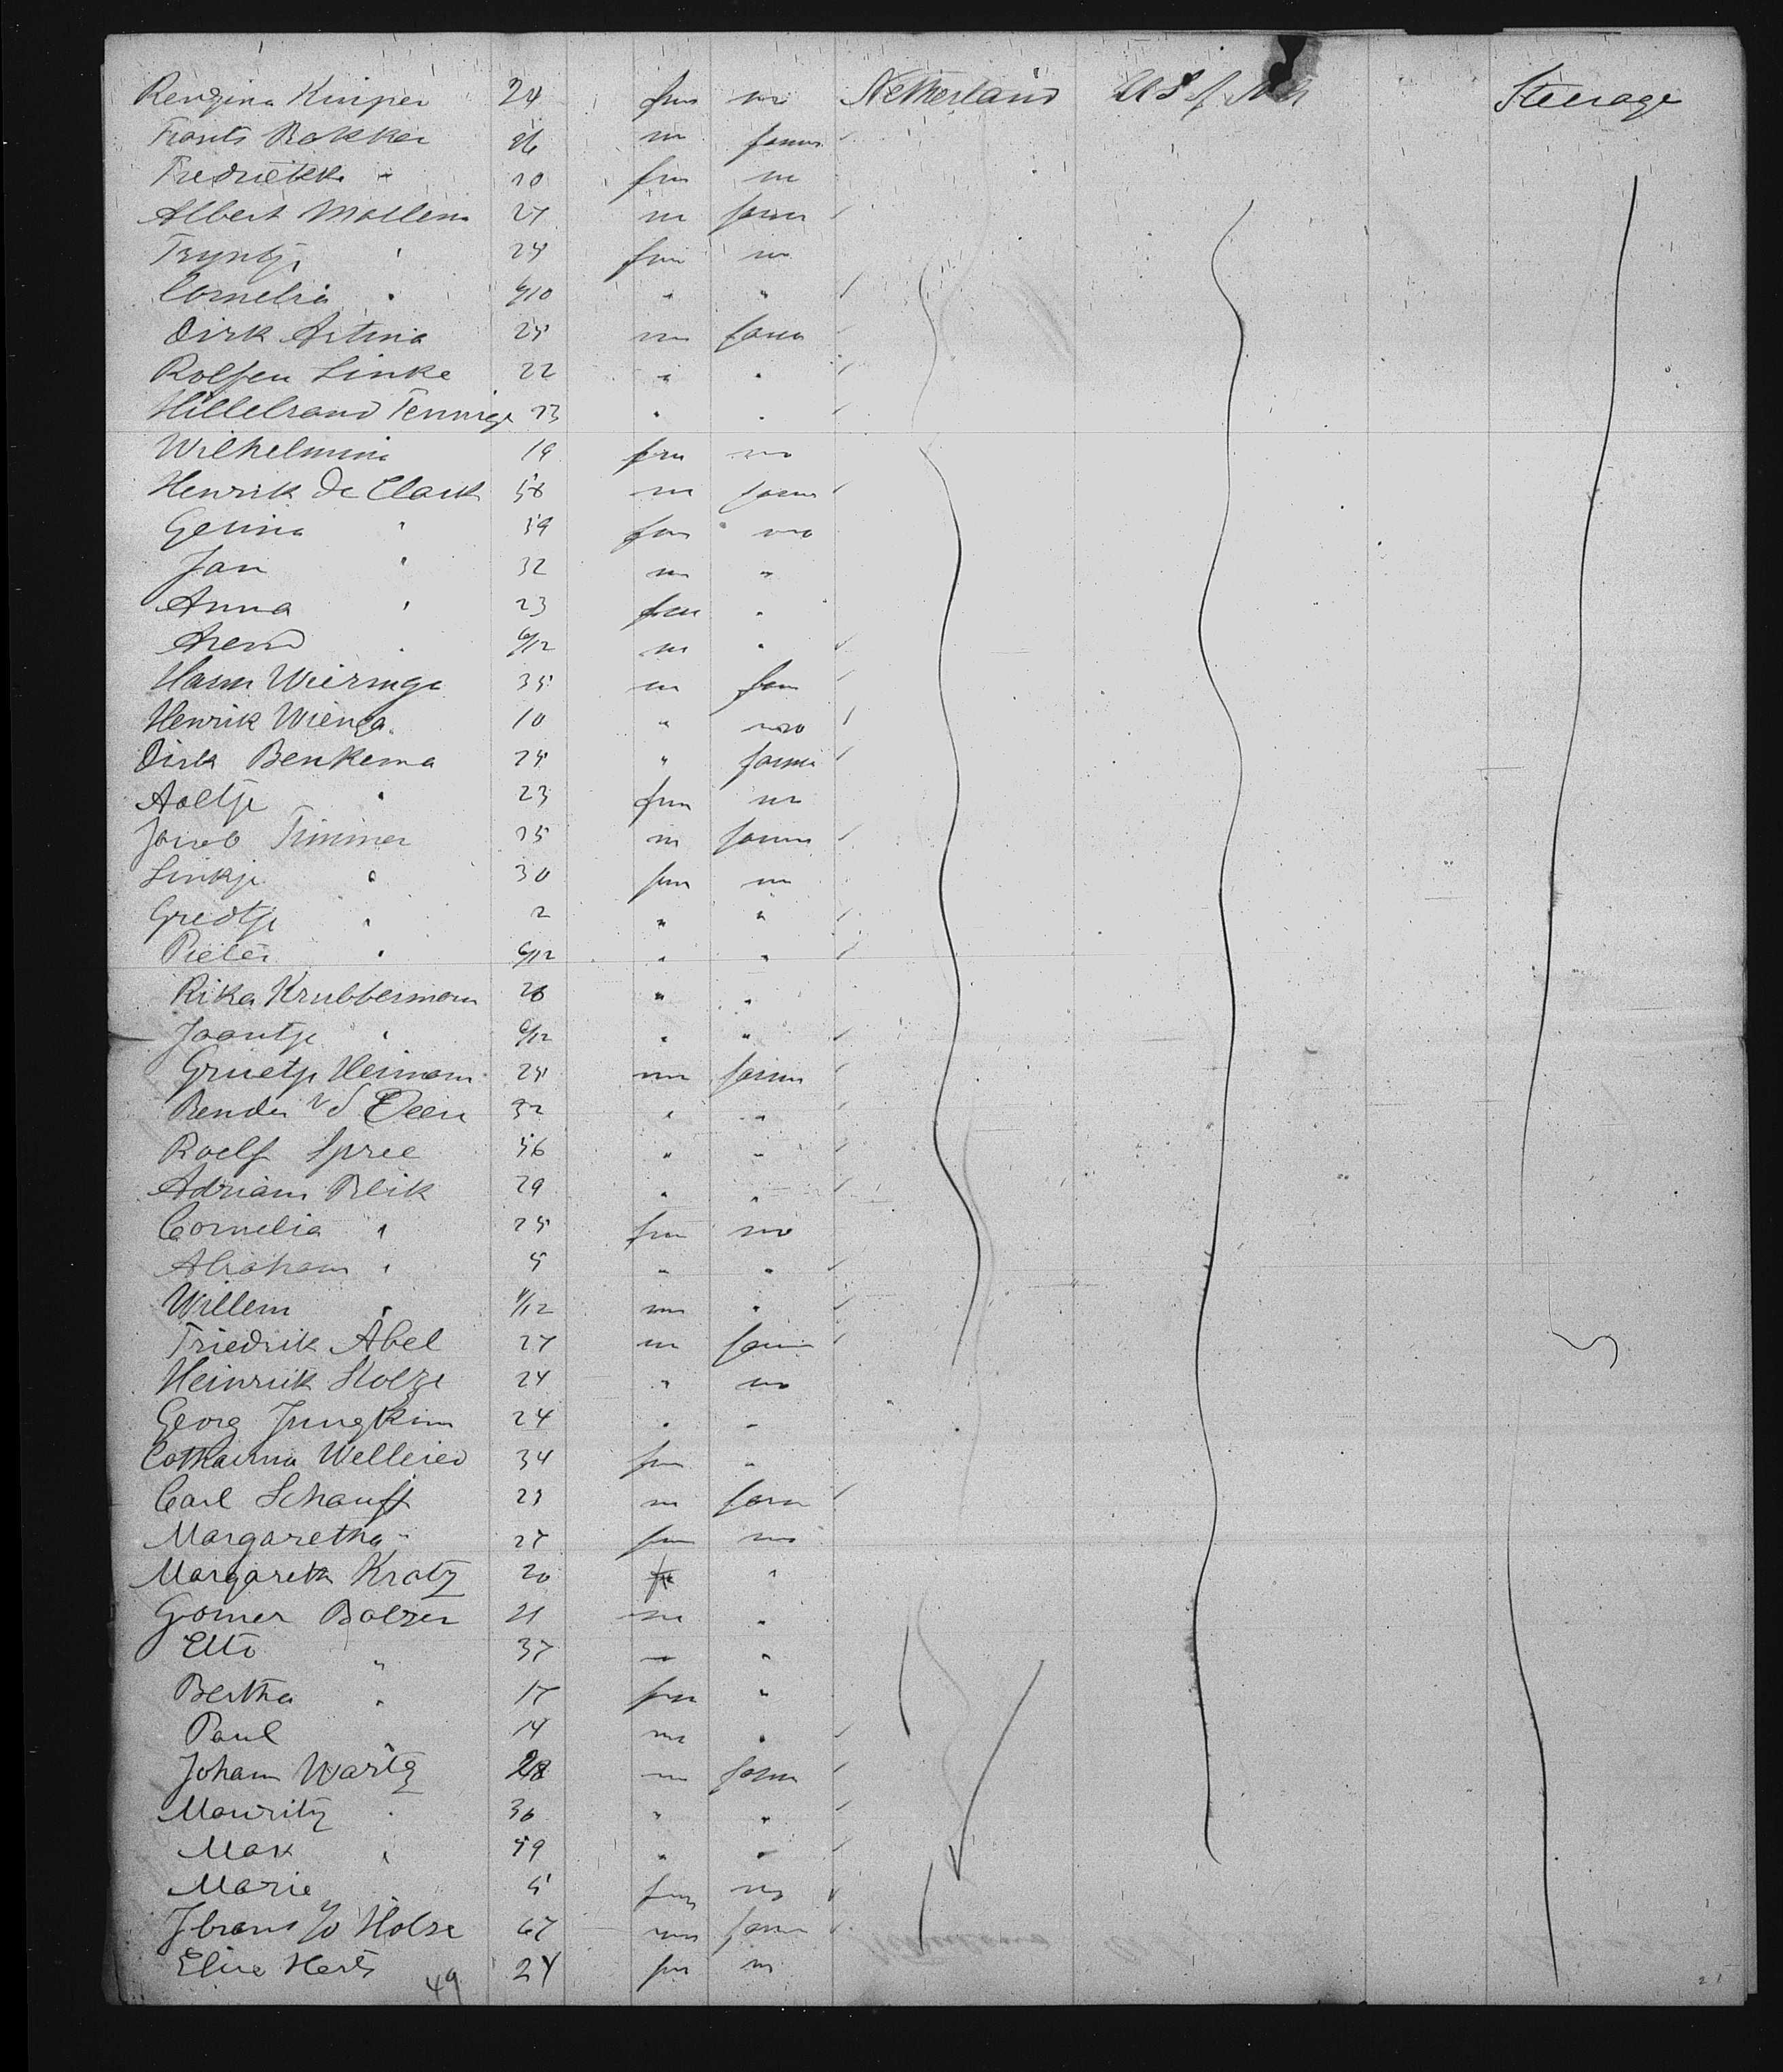 Renzina Kuiper 24 fm no Netherland U S of N A Steerage
Frants Bakker 26 m farmer
Fredriekke " 20 fm no
Albert Mollema 27 m farmer
Tryntje " 24 fm no
Cornelia " 6/10 " "
Dirk Artuna 25 m farm
Rolfen Linke 22 " "
Hillebrand Tennige 23 " "
Wilhelmina 19 fm no
Henrik de Clark 58 m farm
Gesina " 59 fm no
Jan " 32 m "
Anna " 23 fm "
Arend " 6/12 m "
Harm Wieringa 35 m farm
Henrik Wienga 10 " no
Dirk Benkema 25 " farmer
Aaltje " 23 fm no
Jacob Timmer 25 m farmer
Linkje " 30 fm no
Gredtje " 2 " "
Pieter " 6/12 " "
Rika Krubbermann 28 " "
Jaantje " 6/12 " "
Grietje Heimann 25 m farm
Bender v d Veen 32 " "
Roelf Spree 56 " "
Adriaan Blik 29 " "
Cornelia " 25 fm no
Abraham " 5 " "
Willem " 11/12 m "
Friedrik Abel 27 m farm
Heinrik Stolze 24 " no
Georg Jungkim 24 " "
Catharina Welleied 34 fm "
Carl Schauff 23 m farm
Margaretha " 27 fm no
Margareth Kratz 20 "
Gomer Balzer 21 m "
Etto " 37 "
Bertha " 17 fm "
Paul " 14 m "
Johann Wartz 28 m farm
Mauritz " 36 " "
Max " 59 " "
Marie " 5 fm no
Holse 67 m farm
Elise Herts 24 fm no
49